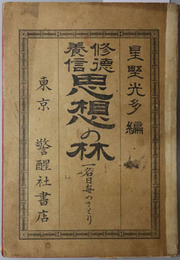 星野光多編
修徳
養信
思想の林
一名日毎のさとり
東京 警醒社書店